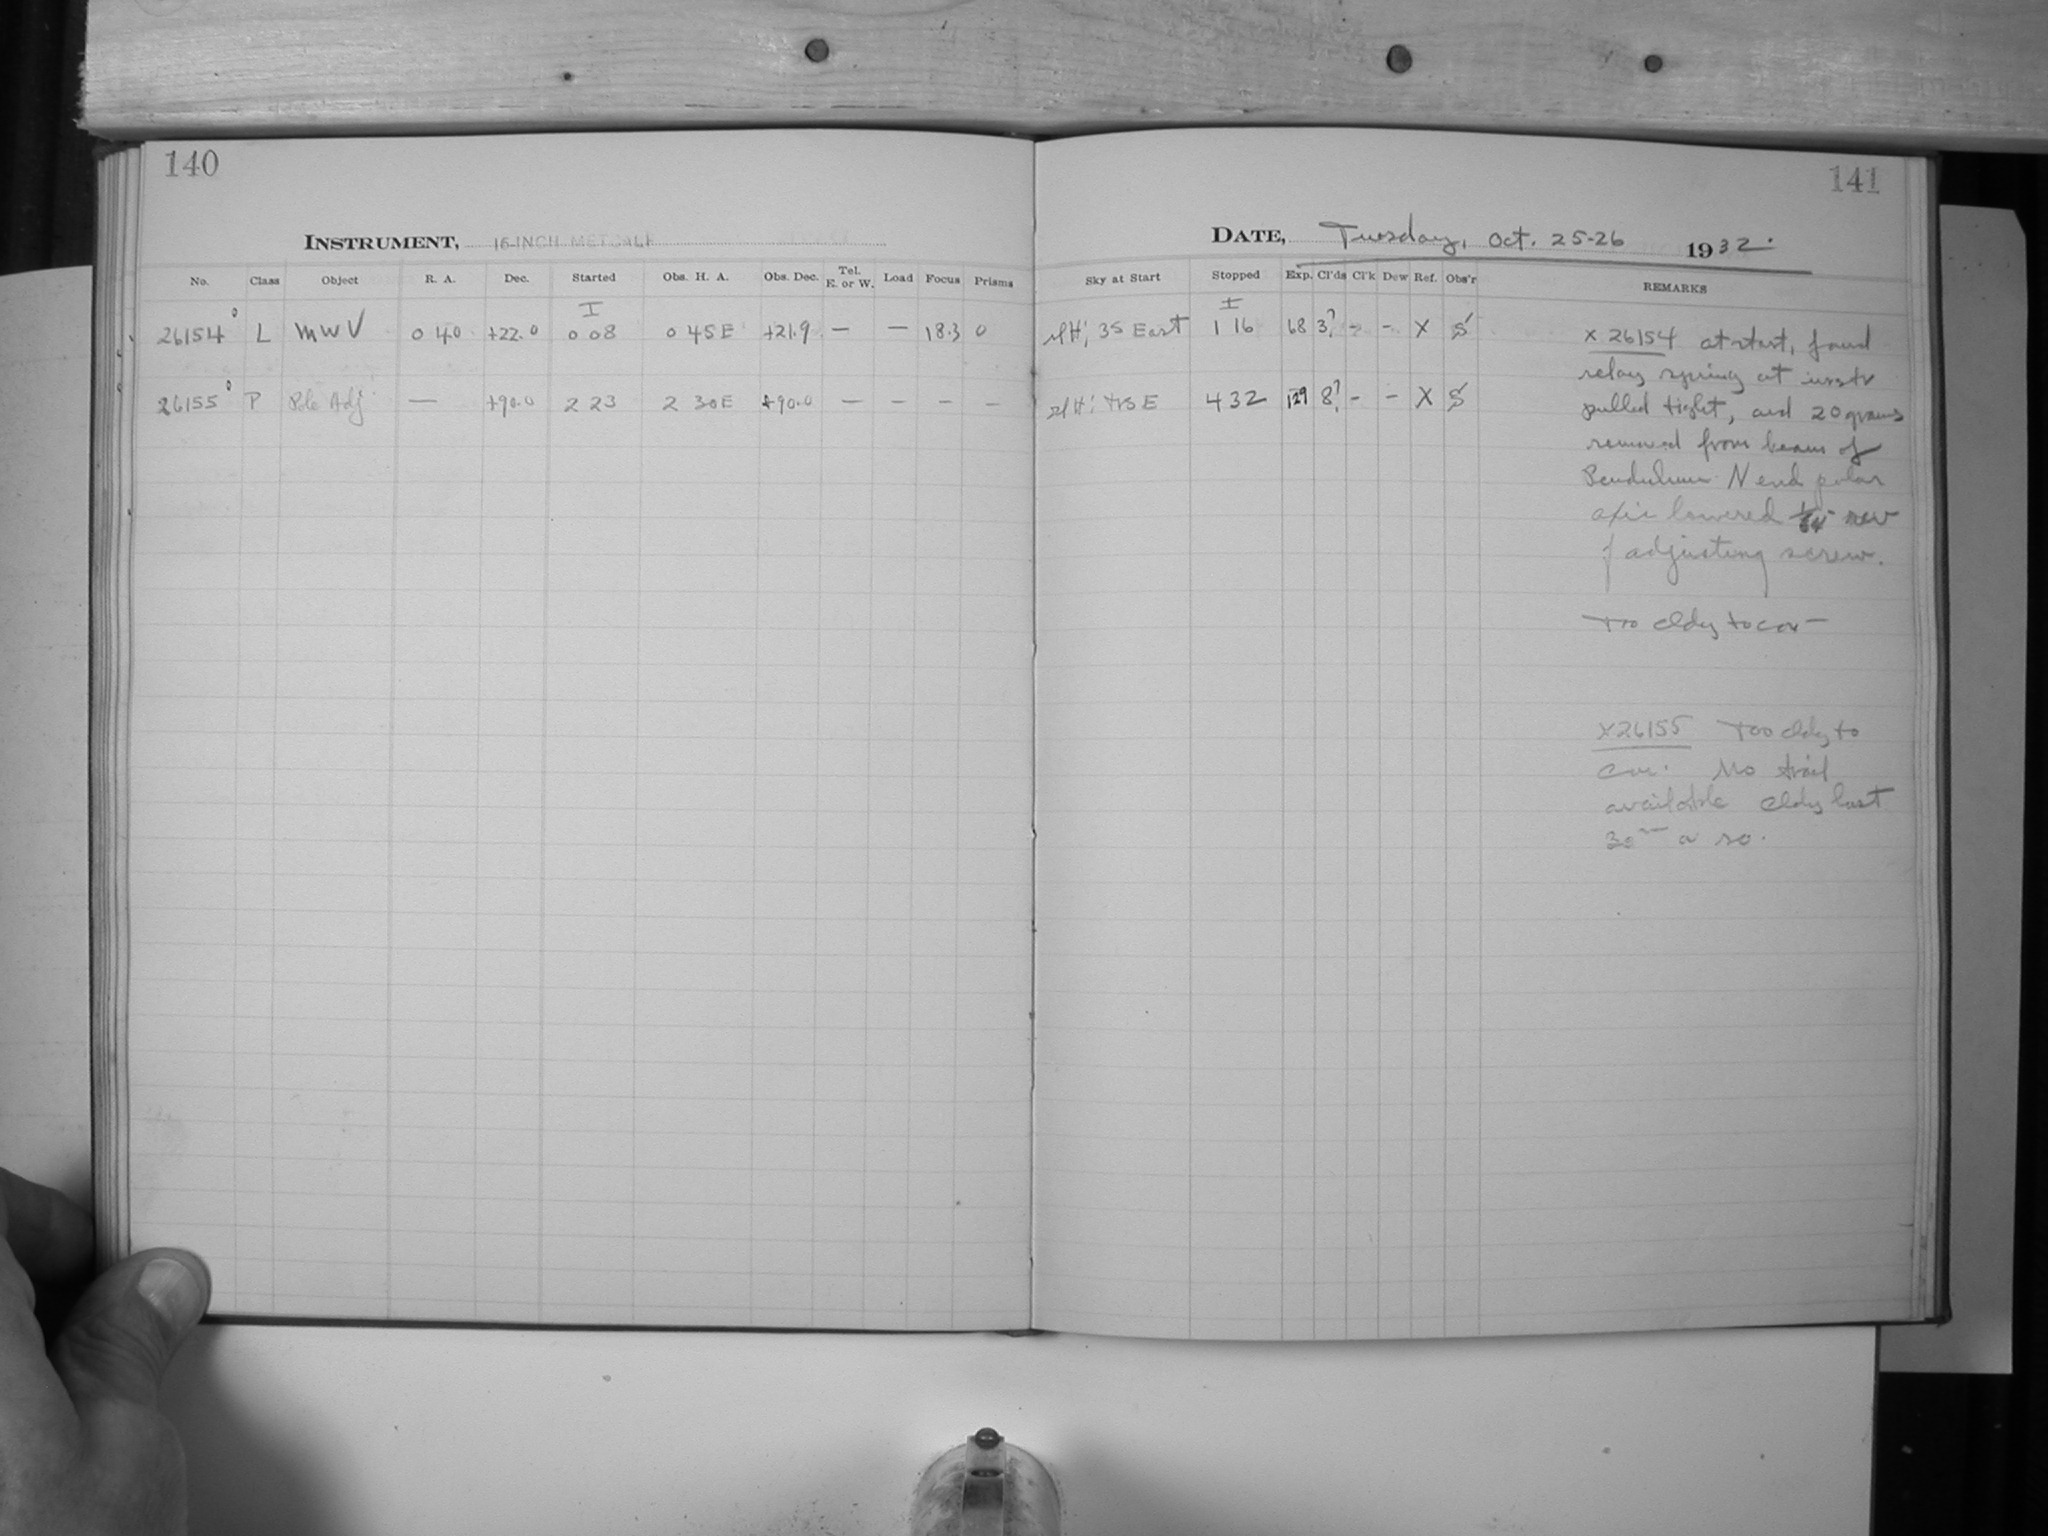 140
INSTRUMENT, 16-INCH METCALF
No. Class Object R. A. Dec. Started Obs. H. A. Obs. Dec. Tel. E. or W. Load Focus Prisms
I
26154 L MWV 0 40 +22.0 0 08 0 45E +21.9 — — 18.3 0
26155 P Pole Adj — +90.0 2 23 2 30E +90.0 — — — —
141
DATE, Tuesday, Oct. 25-26 1932.
Sky at Start Stopped Exp. Cl'ds Cl'k Dew Ref. Obs'r REMARKS
I
35 East 1 16 68 3? - - X S
E 4 32 129 8? - - X S
X 26154 at start, found
relay spring at instr
pulled tight, and 20 grams
removed from beam of
Pendulum N end polar
axis lowered 1/64 rev
of adjusting screw.
Too cldy to con —
X26155 Too cldy to
con. No trail
available cldy last
30m or so.